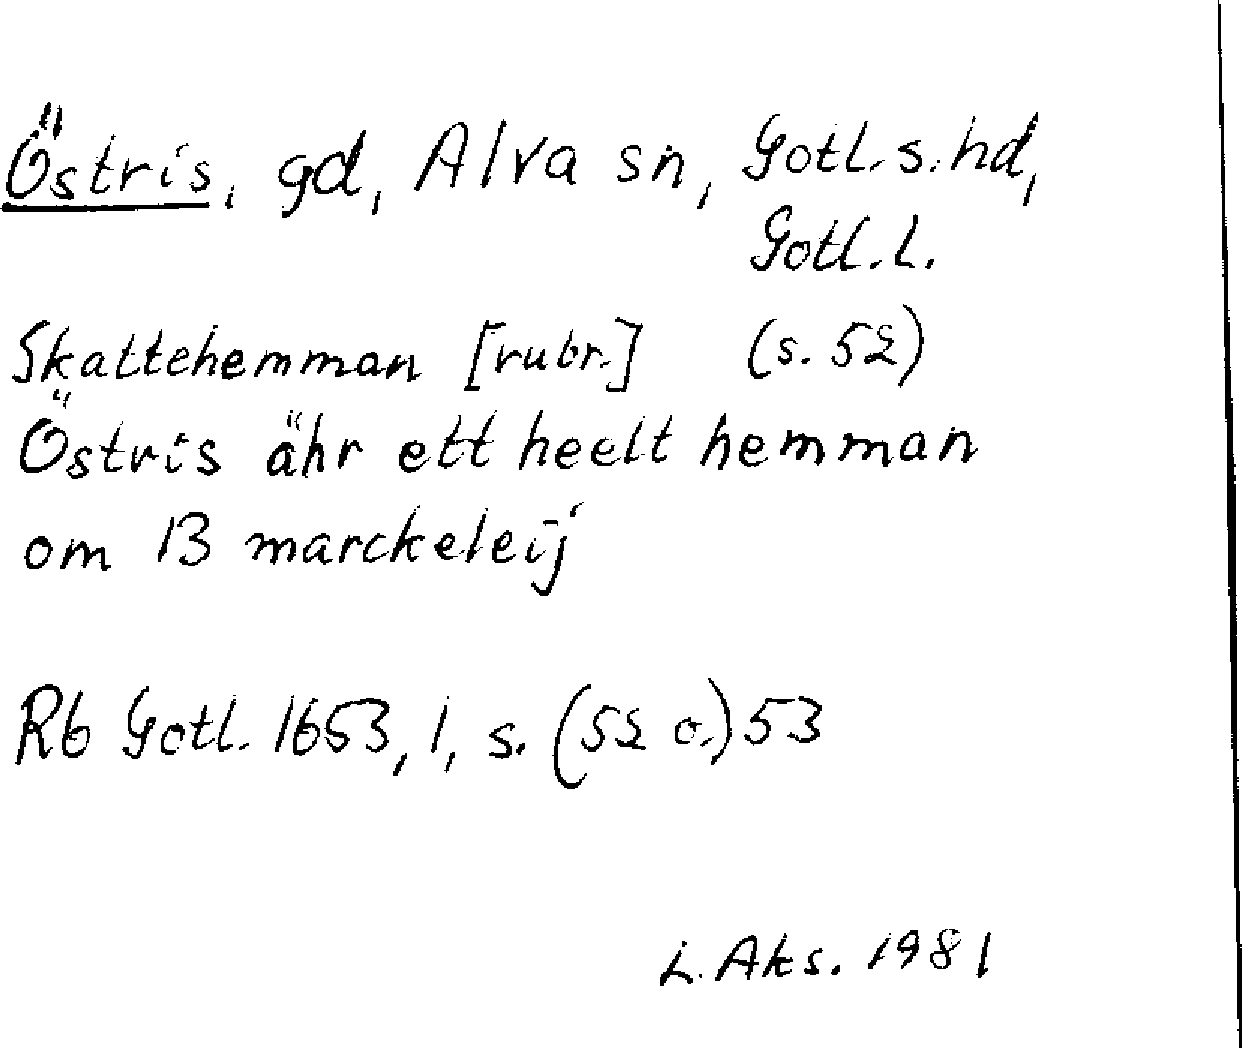 Östris, gd, Alva sn, Gotl. s. hd,
Gotl. l.
Skattehemman [rubr.] (s. 52)
Östris ähr ett heelt hemman
om 13 marckeleij
Rb Gotl. 1653, 1, s. (52 o.) 53
L. Aks. 1981